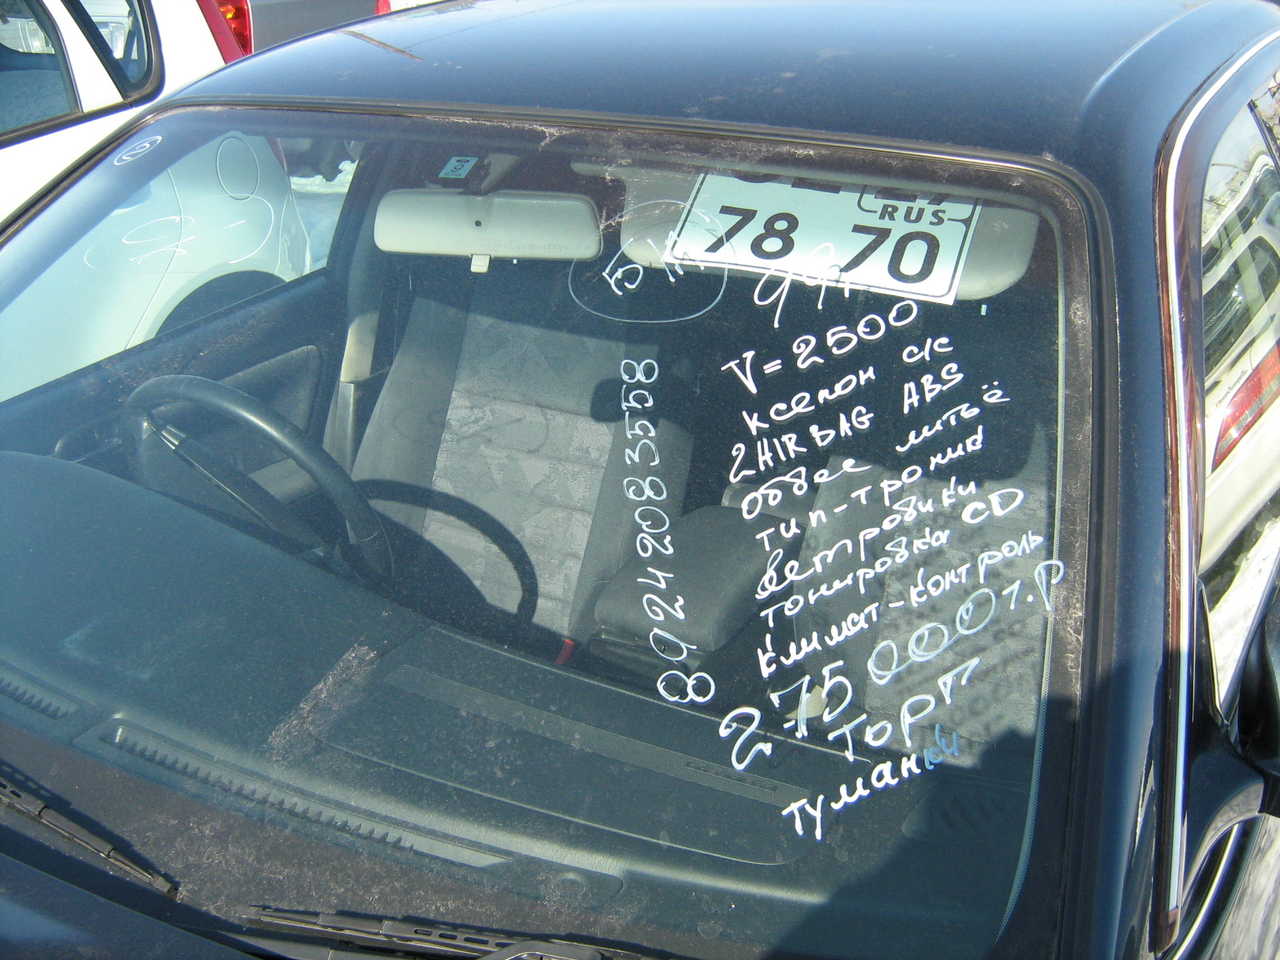 RUS
78 70
99г
V=2500
ксенон с/с
2AIRBAG ABS
обвес литьё
тип-троник
ветровики
тонировка CD
климат-контроль
275000т.р
торг
туманки
89242083558